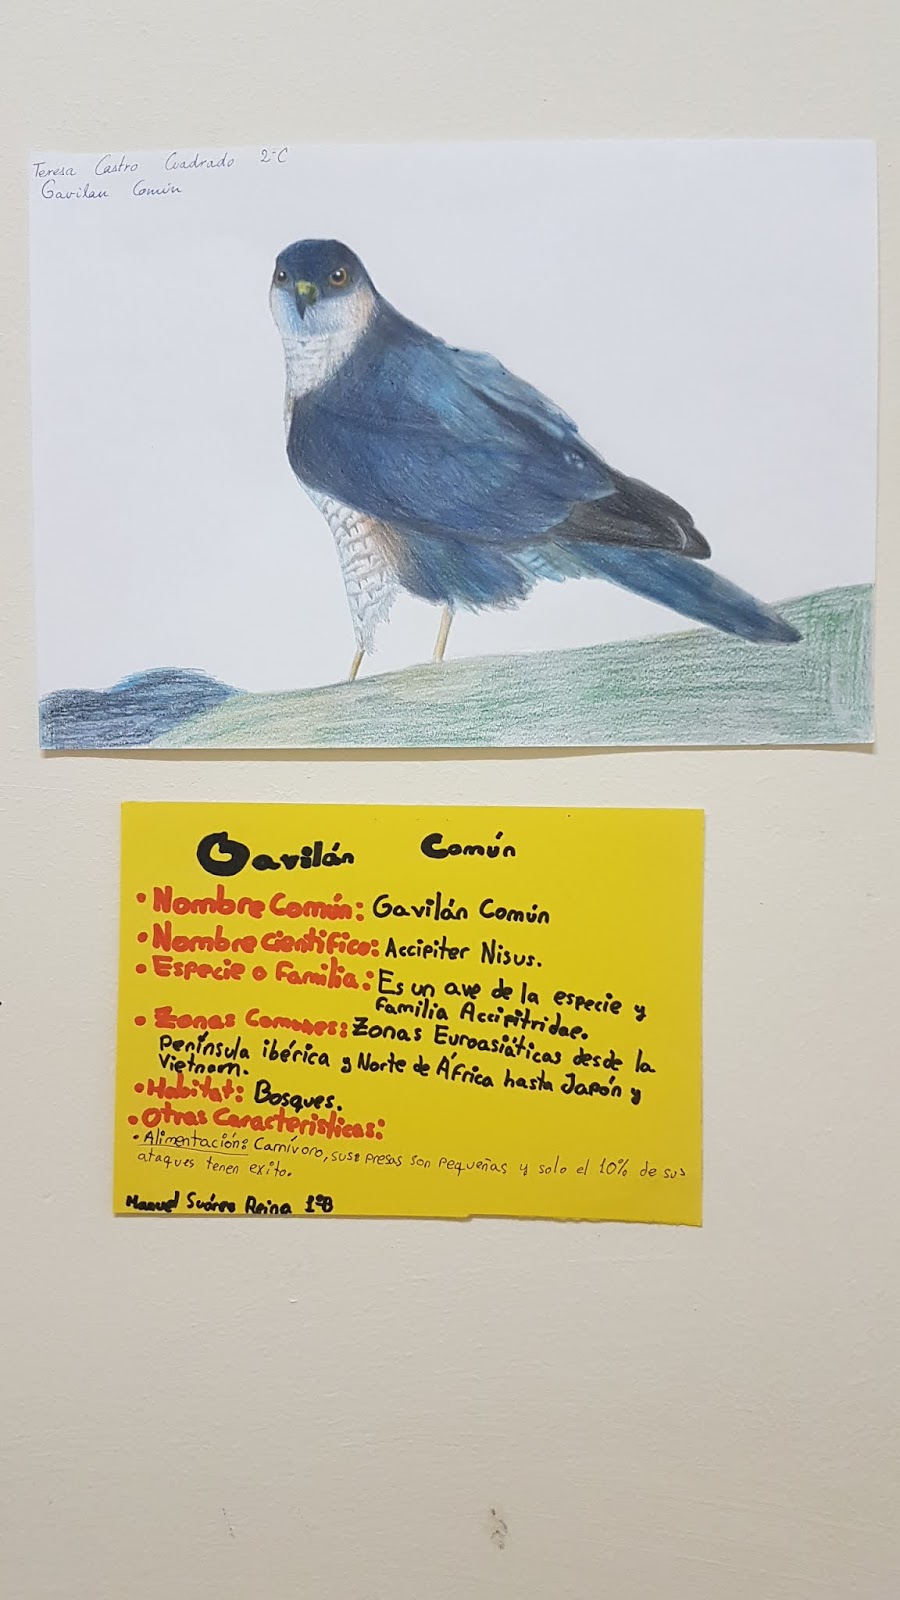 Teresa Castro Cuadrado 2ºC
Gavilan Común
Gavilán Común
• Nombre Común: Gavilán Común
• Nombre científico: Accipiter Nisus.
• Especie o Familia: Es un ave de la especie y
familia Accipitridae.
• Zonas Comunes: Zonas Euroasiáticas desde la
Península ibérica y Norte de África hasta Japón y
Vietnam.
• Habitat: Bosques.
• Otras Caracteristicas:
• Alimentación: Carnívoro, sus presas son pequeñas y solo el 10% de sus
ataques tienen exito.
Manuel Suárez Reina 1ºB